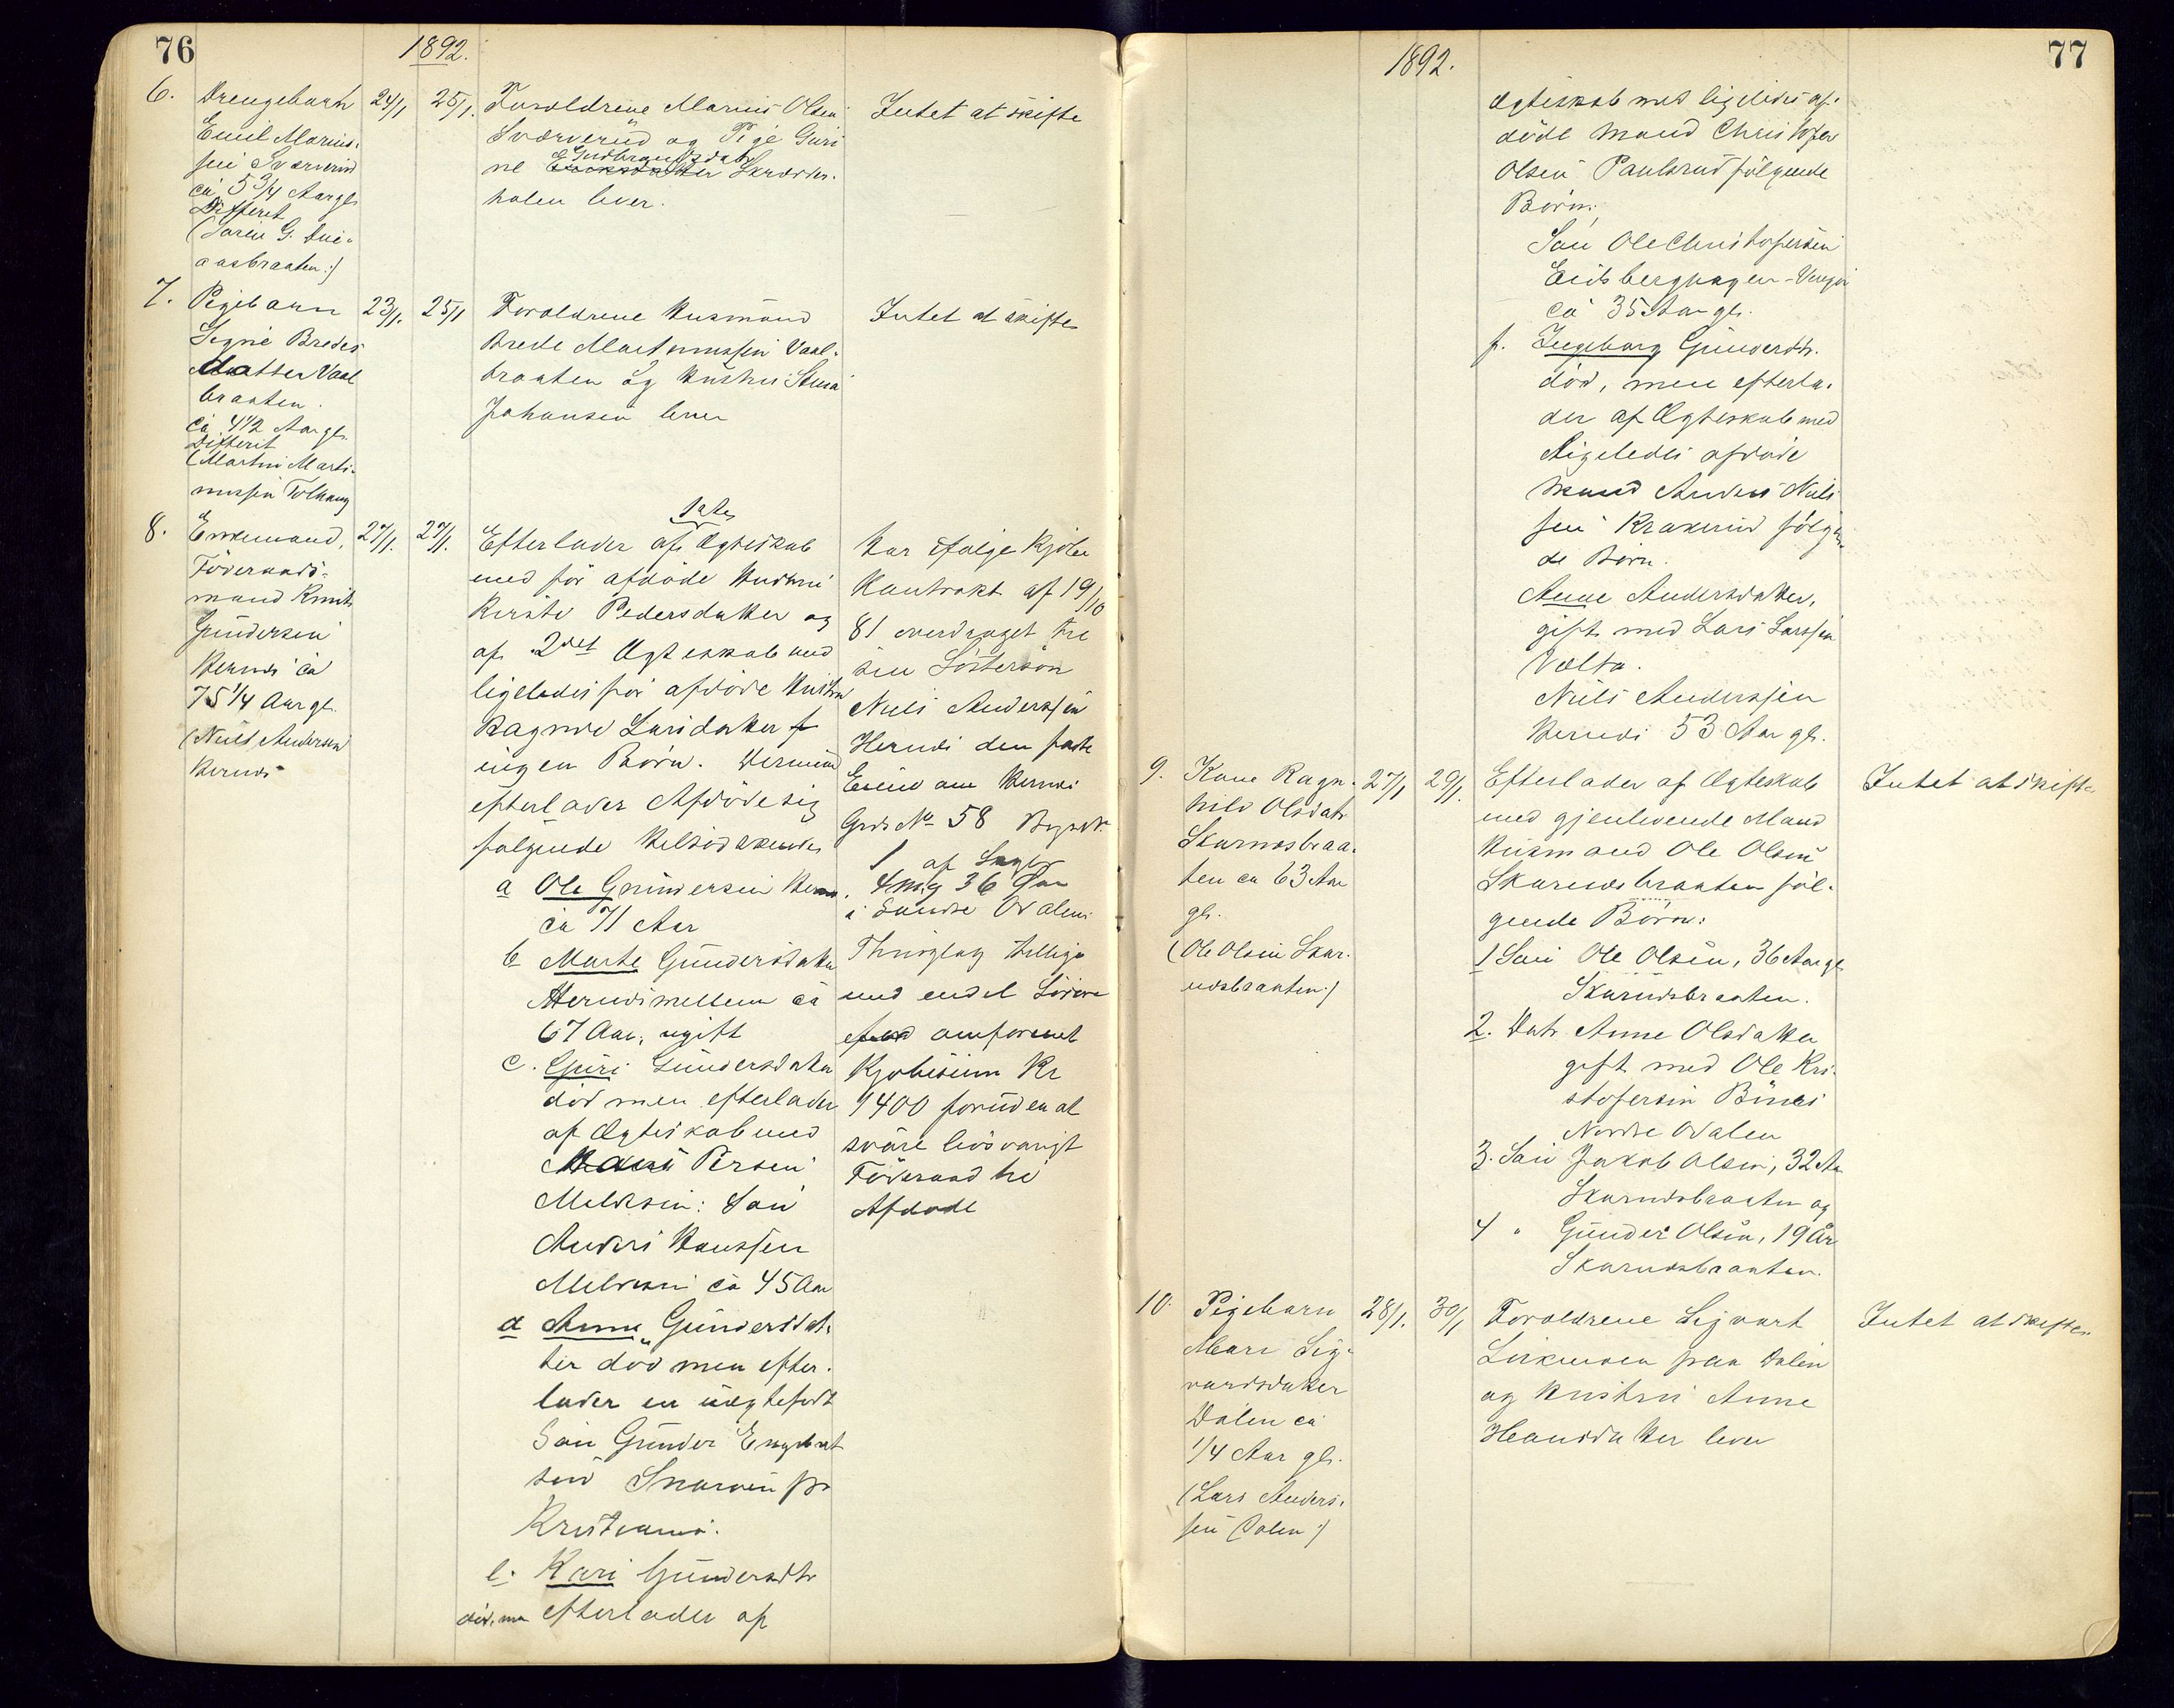 76
1892.
6.
Drengebarn
Emil Marius-
sen Sværverud
ca 5 3/4 Aar gl.
Difterit
(Karen G.
aasbraaten:)
24/1
25/1.
Forældrene Marius Olsen
Sværverud og Pige Guri
ne Eriksdatter Gudbrandsdatr Skrædder-
holen lever.
Intet at skifte
7.
Pigebarn
Signe Bredes
datter Vaal
braaten.
ca 4 1/2 Aar gl.
Difterit
(Martin Marti-
nussen Tolhaug
23/1.
25/1
Forældrene Husmand
Brede Martinussen Vaal-
braaten og Hustru
Johansen lever
Intet at skifte
8.
Enkemand,
Föderaads-
mand Knut
Gundersen
Herud ca
75 1/4 Aar gl.
(Niels Andersen
Herud
27/1.
29/1.
Efterlader af 1ste Ægteskab
med før afdöde Hustru
Kirsti Pedersdatter og
af 2det Ægteskab med
ligeledes før afdöde Hustru
Ragnild Larsdatter
ingen Börn. Derimod
efterlader Afdöde sig
følgende Helsödskende
a Ole Gundersen Herud.
ca 71 Aar
b Marte Gundersdatter
Herudsmellem ca
67 Aar, ugift
c. Guri Gundersdatter
död men efterlader
af Ægteskab med
Hans Persen
Melbsen: Sön
Anders Hanssen
ca 45 Aar
d Anne Gundersdat-
ter död men efter-
lader en uægtefödt
Sön Gunder Engebret
sen Snaroen pr
Kristiania.
e. Kari Gundersdtr
död, men efterlader af
Har ifølge Kjöbe
Kontrakt af 19/10
81 overdraget til
sin Söstersön
Niels Anderssen
Herud den faste
Eiendom Herud
Grds No 58 Brugs No
1 af Skyld
4 Mrk 36 Öre
i Söndre Odalens
Thinglag tillige
med endel Lösöre
omforenet
Kjöbesum Kr
1400 foruden at
svare livsvarigt
Föderaad til
Afdöde
77
1892.
Ægteskab med ligeledes af-
döde Mand Christofer
Olsen Paulsrud følgende
Börn:
Sön Ole Christofersen
Eidsberghagen-Vinger
ca 35 Aar gl.
f. Ingeborg Gundersdtr.
död, men efterla-
der af Ægteskab med
ligeledes afdöde
Mand Anders Niels
sen Krakerud følgen-
de Börn.
Anne Andersdatter,
gift med Lars Larssen
Vælta.
Niels Anderssen
Herud 53 Aar gl.
9.
Kone Ragn-
hild Olsdatr
Skarnesbraa-
ten ca 63 Aar
gl.
(Ole Olsen Skar-
nesbraaten:)
27/1
29/1.
Efterlader af Ægteskab
med gjenlevende Mand
Husmand Ole Olsen
Skarnesbraaten føl-
gende Börn:
1 Sön Ole Olsen, 36 Aar gl
Skarnesbraaten.
2. Datr Anne Olsdatter
gift med Ole Kri-
stofersen
Nordre Odalen
3. Sön Jakob Olsen, 32 Aar
Skarnesbraaten og
4 " Gunder Olsen, 19 Ar
Skarnesbraaten.
Intet at skifte
10.
Pigebarn
Mari Sig-
vardsdatter
Dalen ca
1/4 Aar gl.
(Lars Anders-
sen Dalen:)
28/1.
30/1
Forældrene Sigvart
paa Dalen
og Hustru Anne
Hansdatter lever
Intet at skifte.